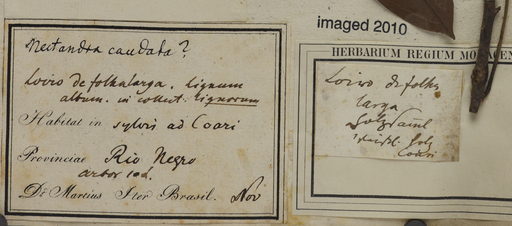 imaged 2010
Nectandra caudata?
Loiro de folha larga. lignum
album. in collect. lignorum
Habitat in sylvis ad Coari
Provinciae Rio Negro
arbor
Dr Martius Iter Brasil. Nov
HERBARIUM REGIUM MONACEN
Loiro de folha
larga
Coari